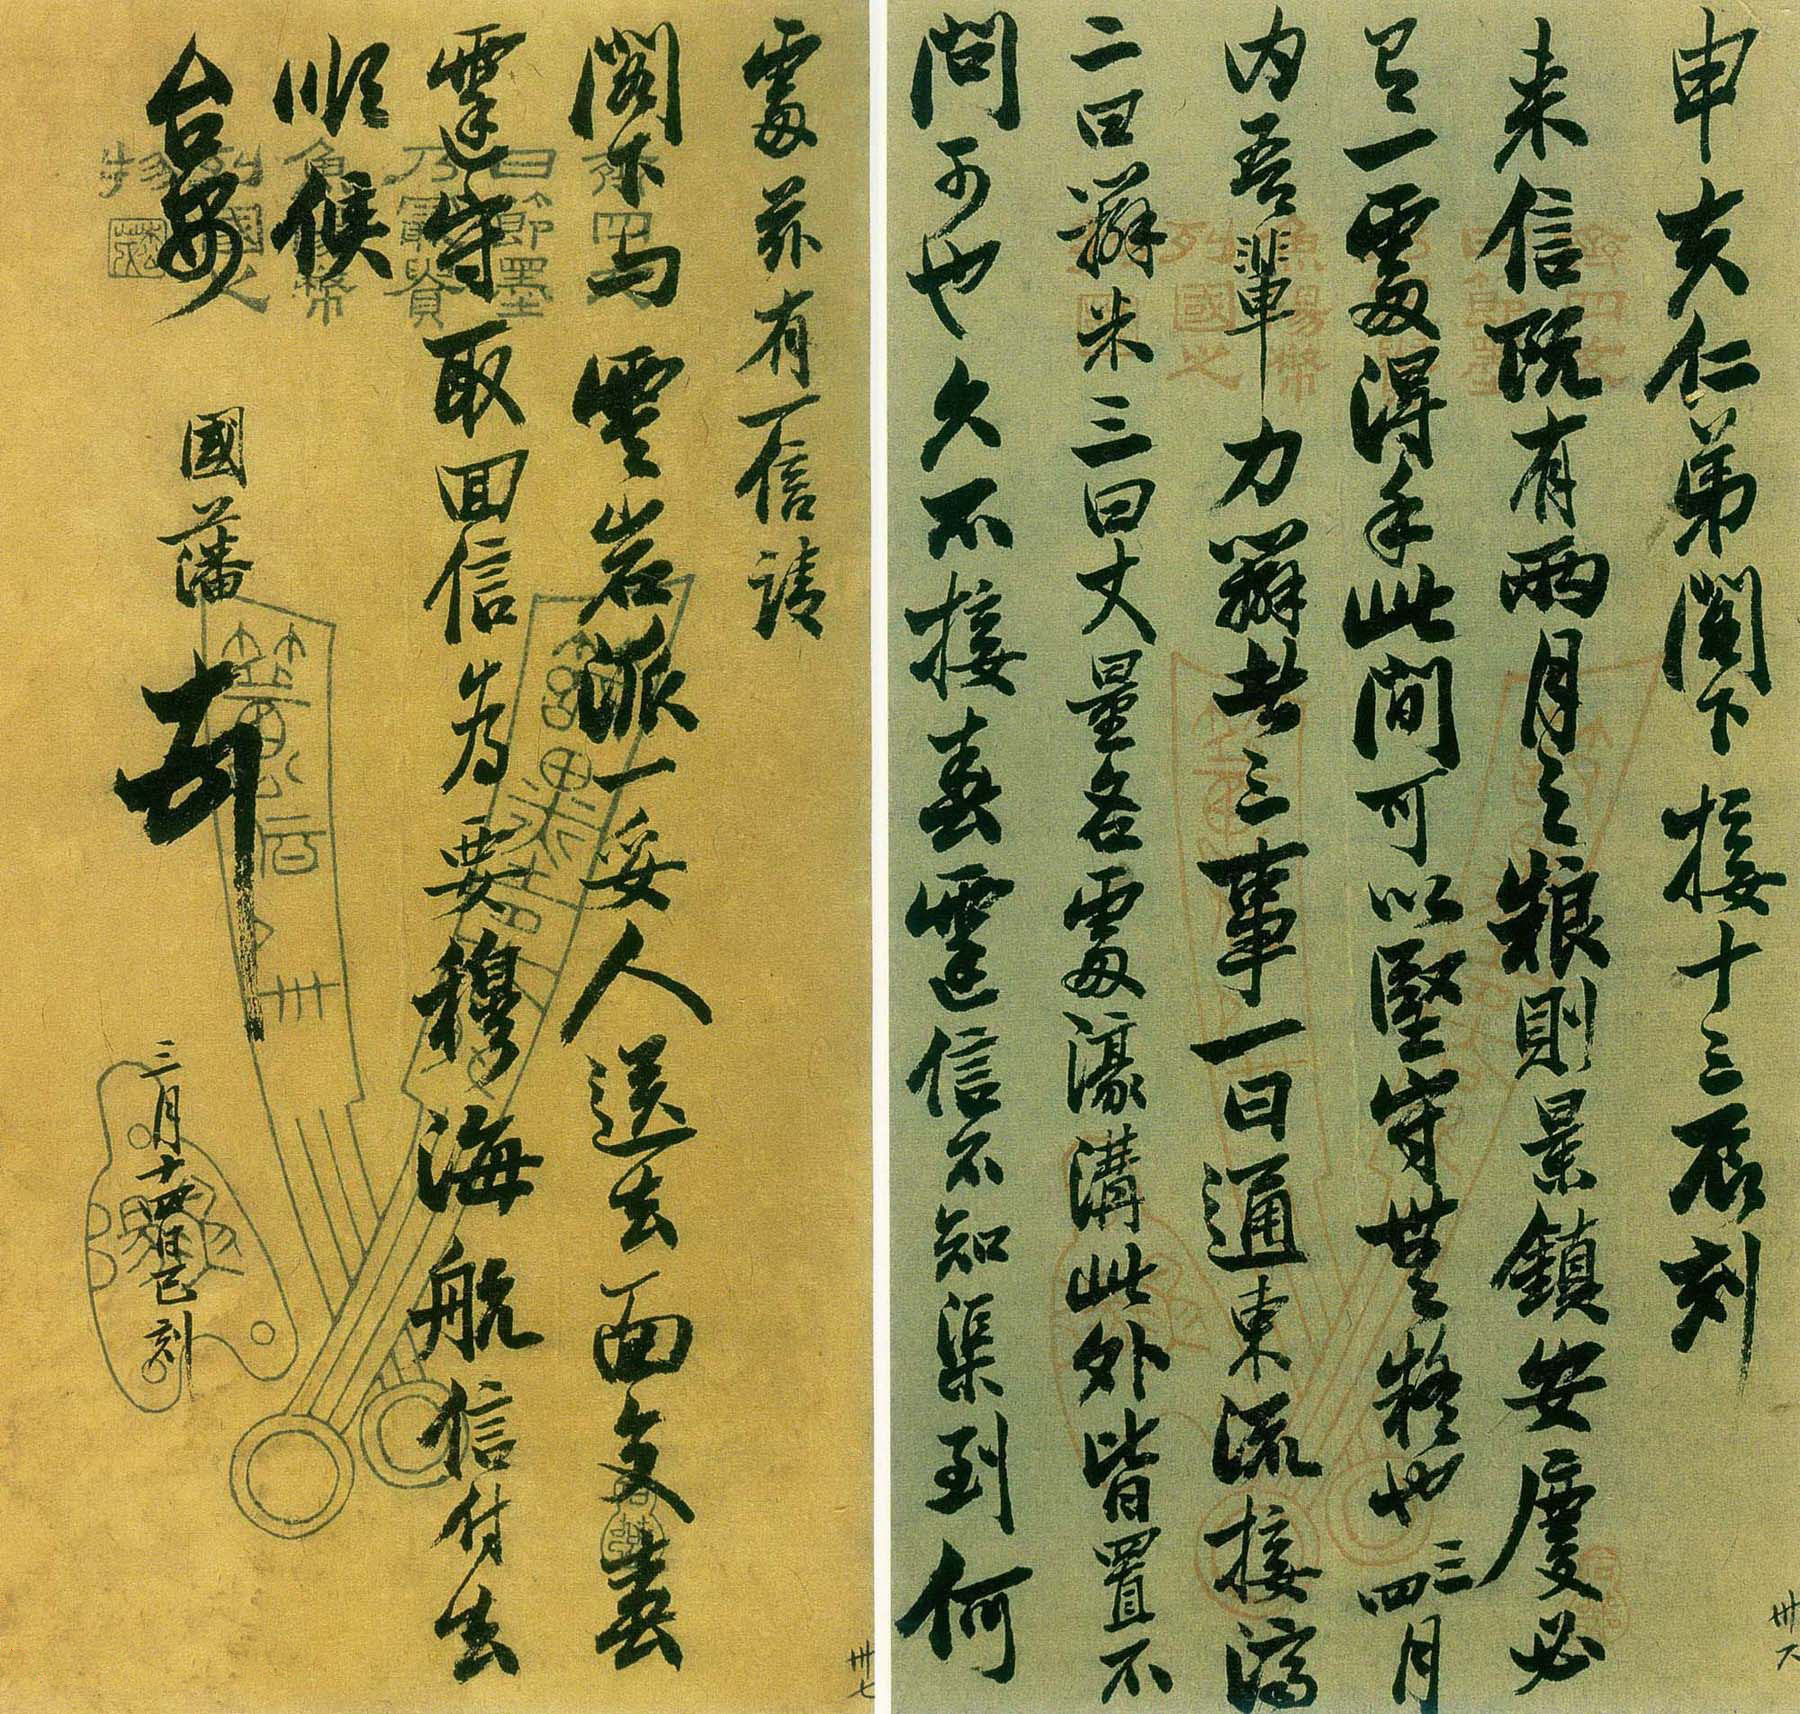 申夫仁弟閣下接十三辰刻
来信既有兩月之粮則景鎮安慶必
有一處得手此間可以堅守無疑也三四月
内吾輩力辦者三事一曰通東流接濟
二曰辦米三曰丈量各處濠溝此外皆置不
問可也久不接春霆信不知渠到何
處兹有一信請
閣下与雲岩派一妥人送去面交春
霆守取回信為要穆海航信付去
順候
台安
國藩
三月十四日巳刻
卅六
卅七